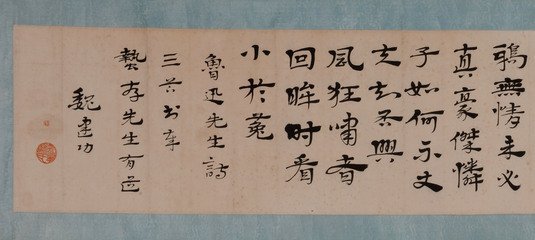 鴉無情未必
真豪傑憐
子如何不丈
夫知否興
風狂嘯者
回眸时看
小於菟
魯迅先生詩
三首書奉
先生有道
魏建功